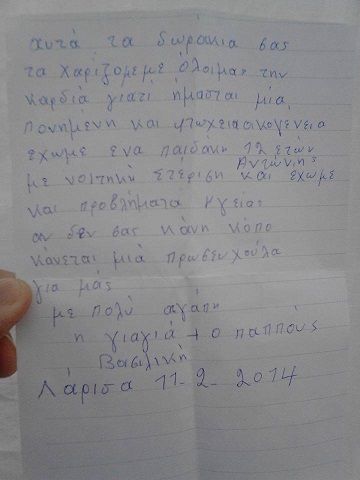 αυτά τα δωράκια σας
τα χαρίζομεμε όλοιμας την
καρδιά γιατί ήμασται μία
πονημένη και φτωχειαοικογένεια
έχωμε ενα παιδάκη 12 ετών
Αντώνης
με νοιτηκή στέριση και έχωμε
και προβλήματα υγείας
αν δεν σας κάνη κόπο
κάνεται μιά πρωσευχούλα
για μάς
με πολύ αγάπη
η γιαγιά + ο παππούς
Βασιλικη
Λάρισα 11-2-2014